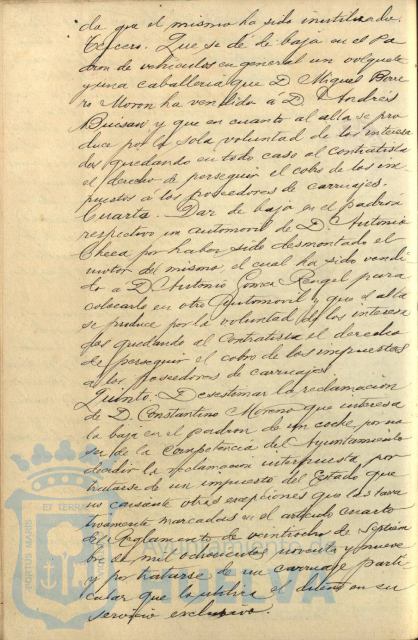 da que el mismo ha sido inutilizado.
Tercero. Que se dé de baja en el Pa
dron de vehiculos en general un volquete
y una caballeria que D. Miguel Borre
ro Moron ha vendido á D. Andrés
y que en cuanto al alta se pro
duce por la sola voluntad de los interesa
dos quedando en todo caso al contratista
el derecho de perseguir el cobro de los im
puestos á los poseedores de carruajes.
Cuarto. Dar de baja en el padron
respectivo un automovil de D. Antonio
Checa por haber sido desmontado el
motor del mismo el cual ha sido vendi
do á D. Antonio Gomez Rengel para
colocarlo en otro automovil y que el alta
se produce por la voluntad de los interesa
dos quedando al Contratista el derecho
de perseguir el cobro de los impuestos
a los poseedores de carruajes.
Quinto. Desestimar la reclamacion
de D. Constantino Moreno que interesa
la baja en el padron de un coche, por no
ser de la competencia del Ayuntamiento
decidir la reclamacion interpuesta por
tratarse de un impuesto del Estado que
no consiente otras excepciones que las taxa
tivamente marcadas en el articulo cuarto
del Reglamento de veintiocho de Septiem
bre de mil ochocientos noventa y nueve
y por tratarse de un carruaje parti
cular que lo utiliza el dueño en su
servicio exclusivo.
PORTUS MARIS ET TERRAE
HUELVA